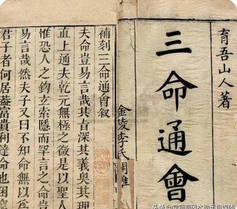 育吾山人著
三命通會
金陵李氏
補刻三命通會叙
夫命豈易言哉其旨深其義奥其理
直上通夫乾元無極之微是以聖人
惟恐人之鈎玄索應而罕言之命豈
易言哉然夫子又曰不知命無以爲
君子者何居葢富貴利達命也